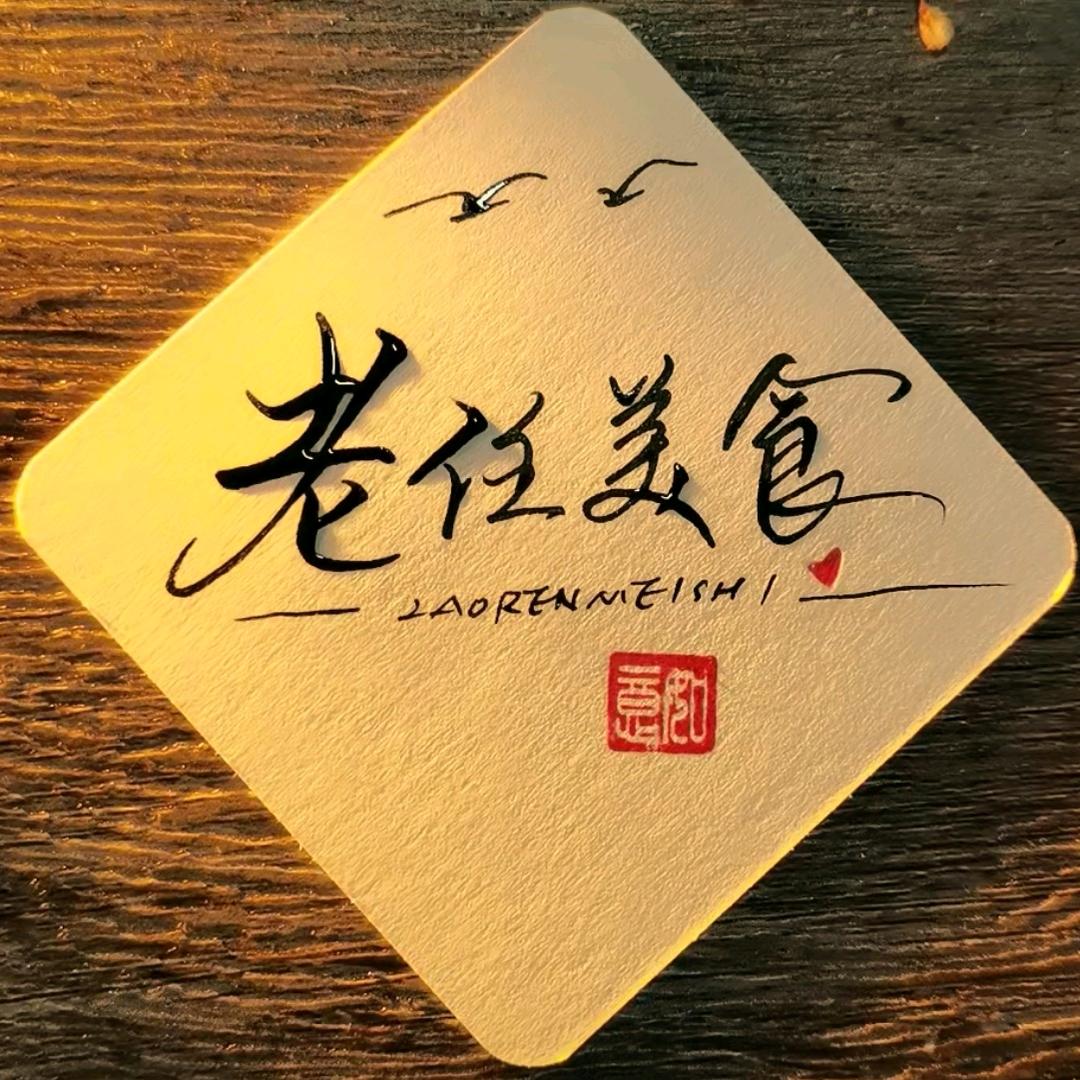 老任美食
LAORENMEISHI
如意